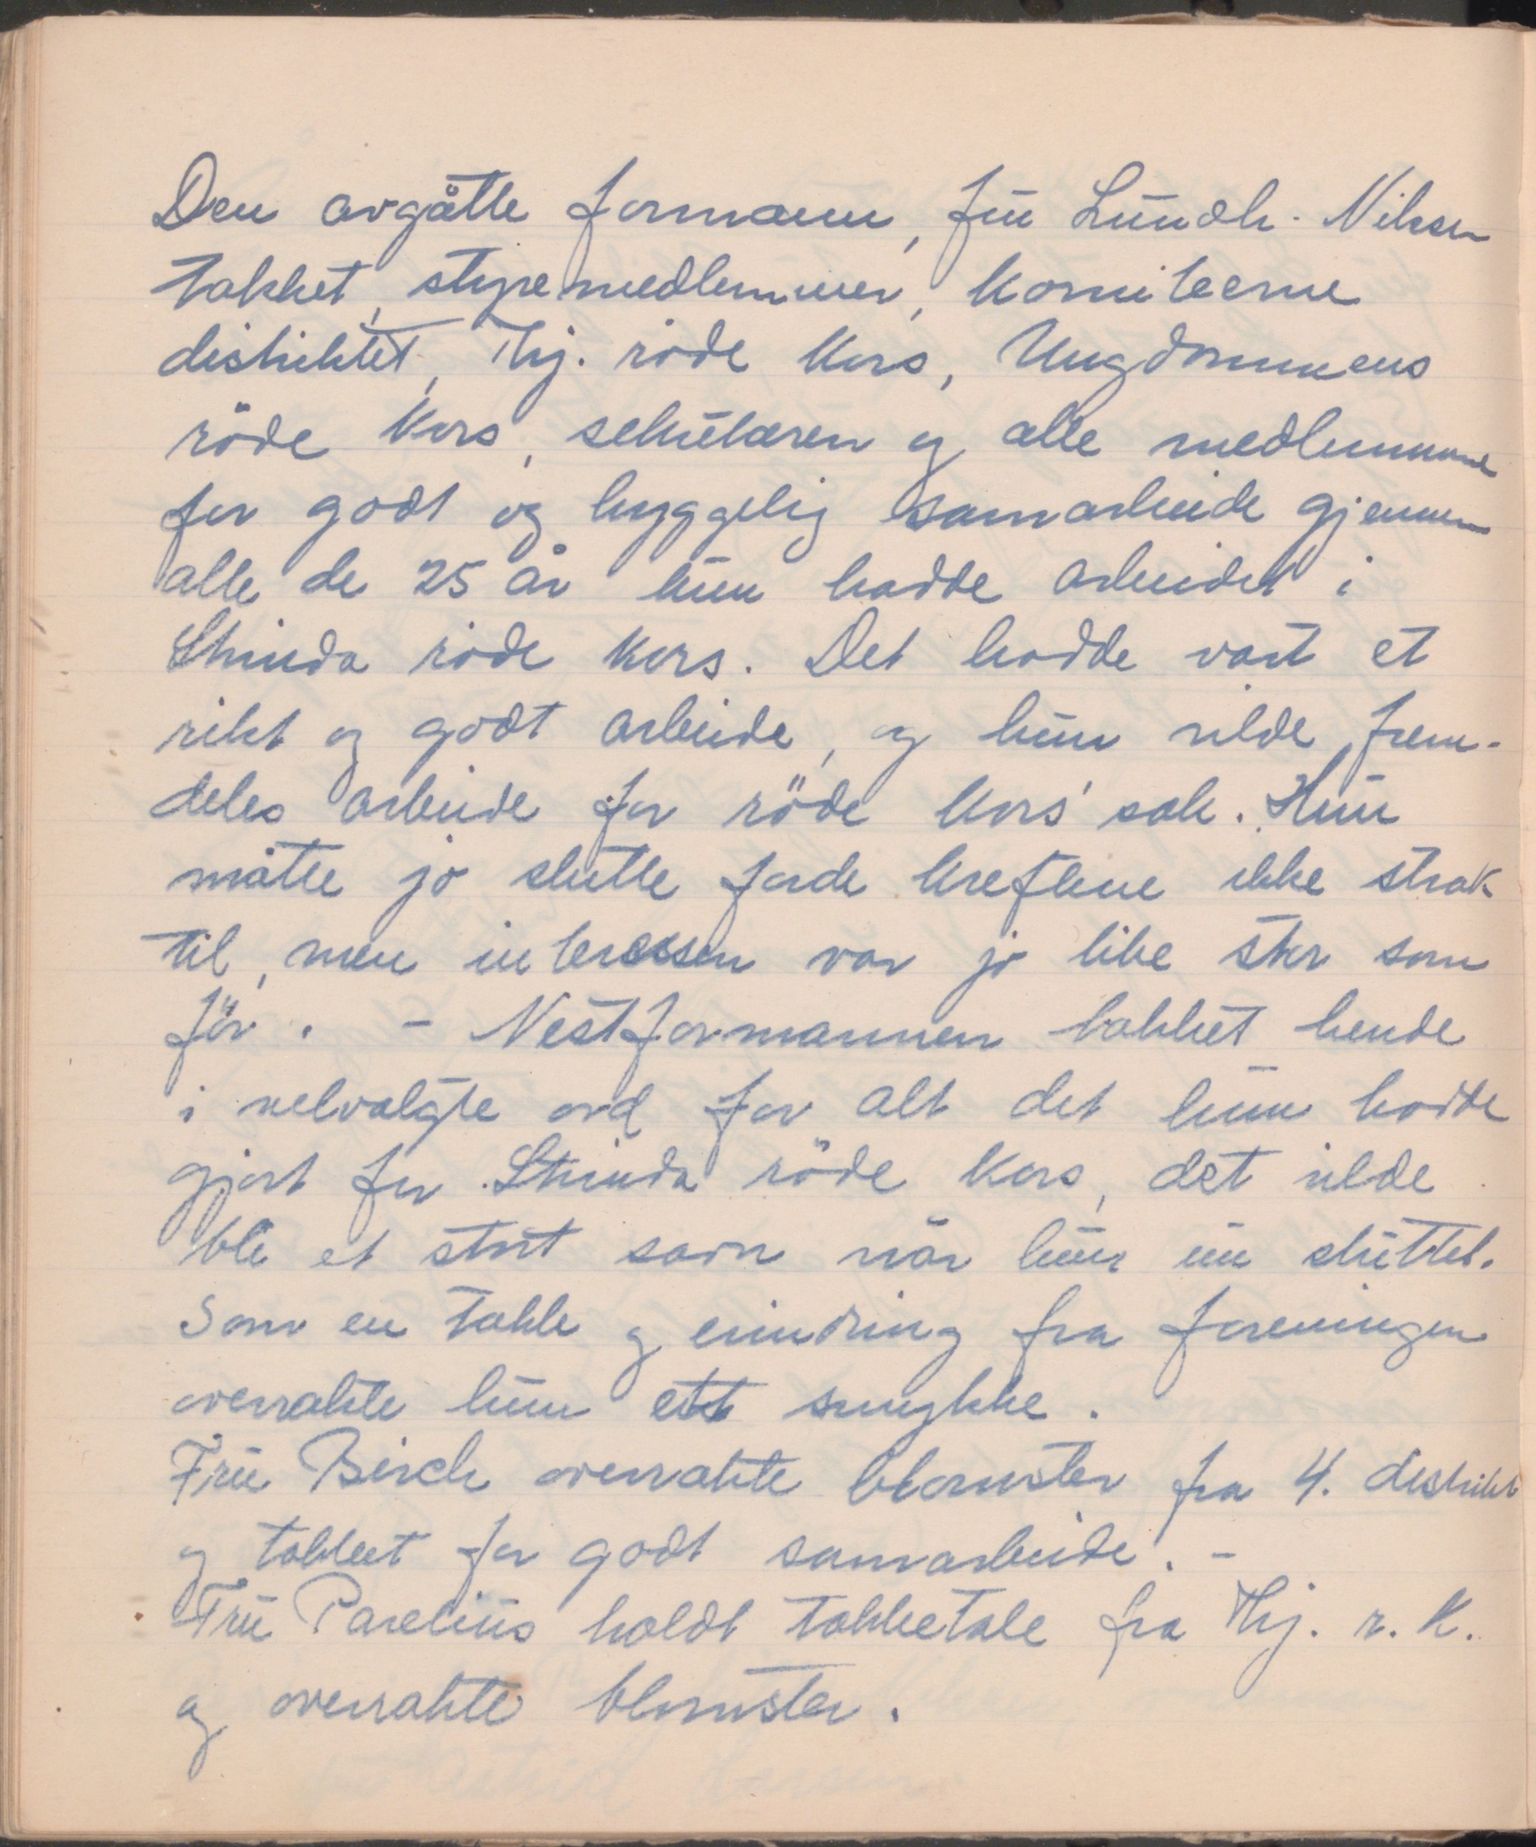 Den avgåtte formann, fru Lundh-Nilsen
takket, styremedlemmer, komiteerne
distriktet, Thj. røde kors, Ungdommens
röde kors, sekretæren og alle medlemmene
for godt og hyggelig samarbeide gjennem
alle de 25 år hun hadde arbeidet i
Strinda røde kors. Det hadde vært et
rikt og godt arbeide, og hun vilde frem-
deles arbeide for röde kors' sak. Hun
måtte jo slutte fordi kreftene ikke strak
til, men interessen var jo like stor som
för. - Nestformannen takket hende
i velvalgte ord for alt det hun hadde
gjort for Strinda röde kors, det vilde
bli et stort savn når hun nu sluttet.
Som en takk og erindring fra foreningen
overrakte hun ett smykke.
Fru Birch overrakte blomster fra 4. distrikt
og takket for godt samarbeide. -
Fru Parelius holdt takketale fra Thj. r. K.
og overrakte blomster.